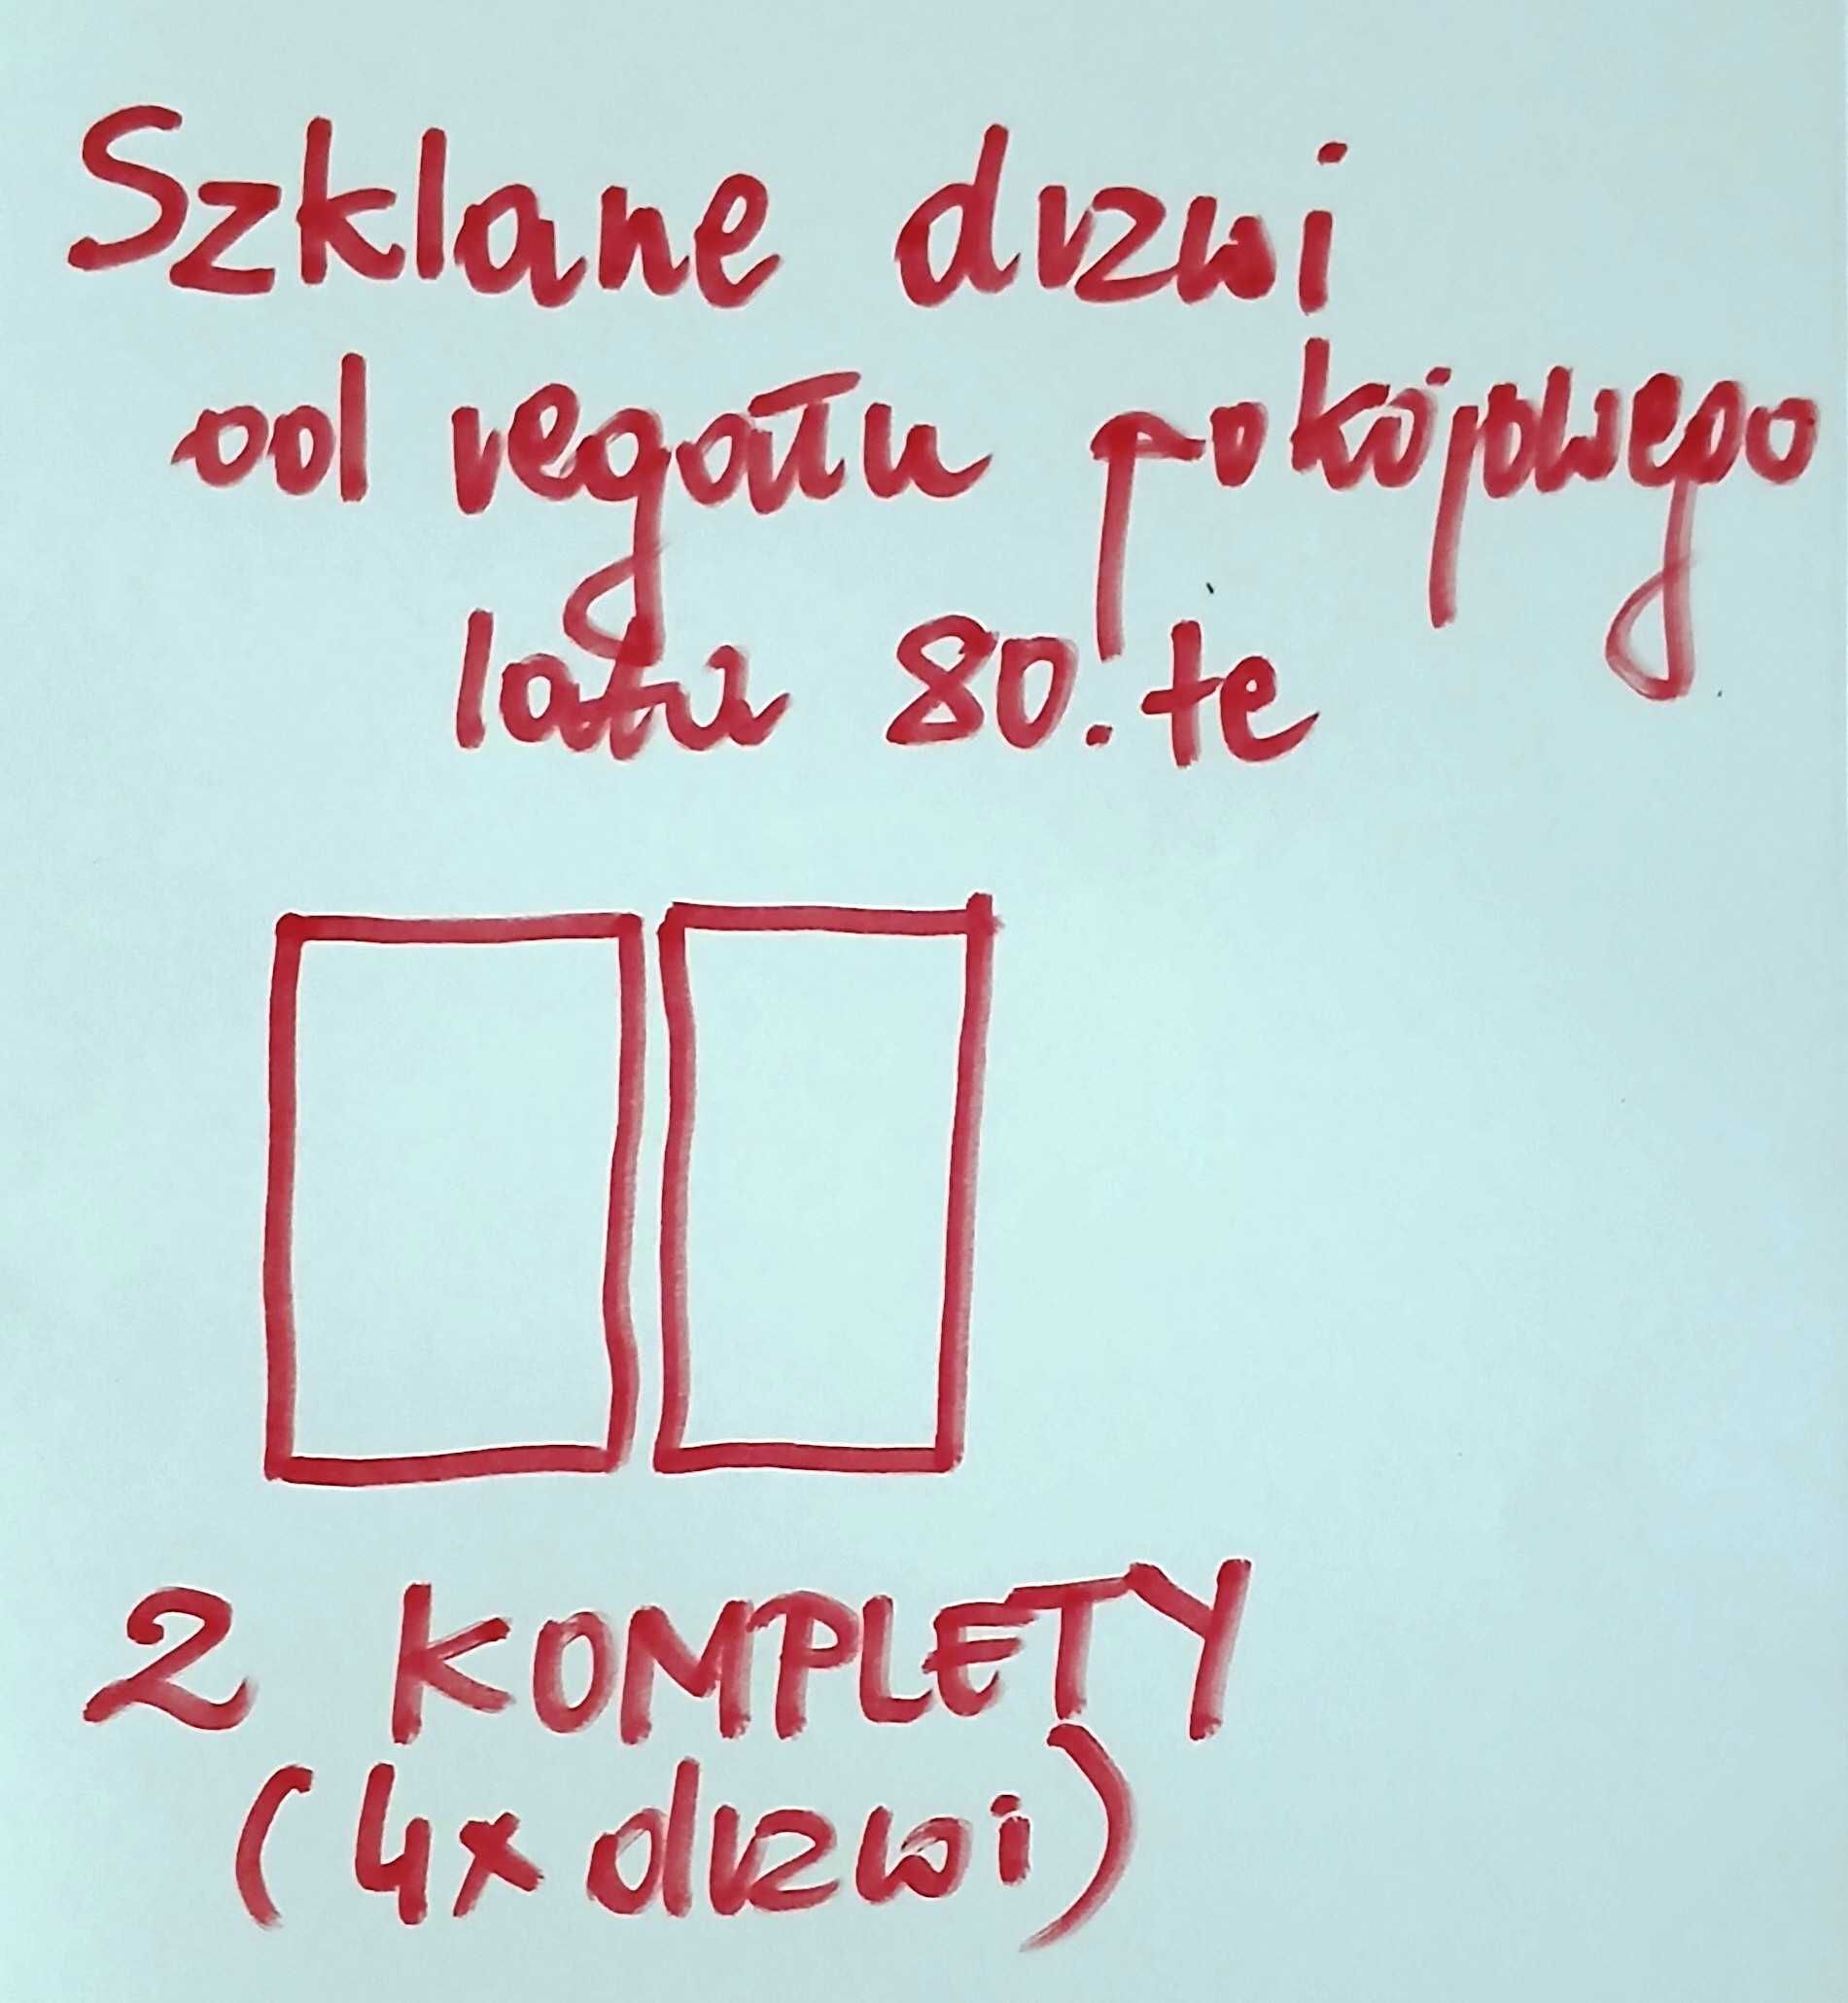 Szklane drzwi
od regału pokojowego
lata 80.te
2 KOMPLETY
(4x drzwi)